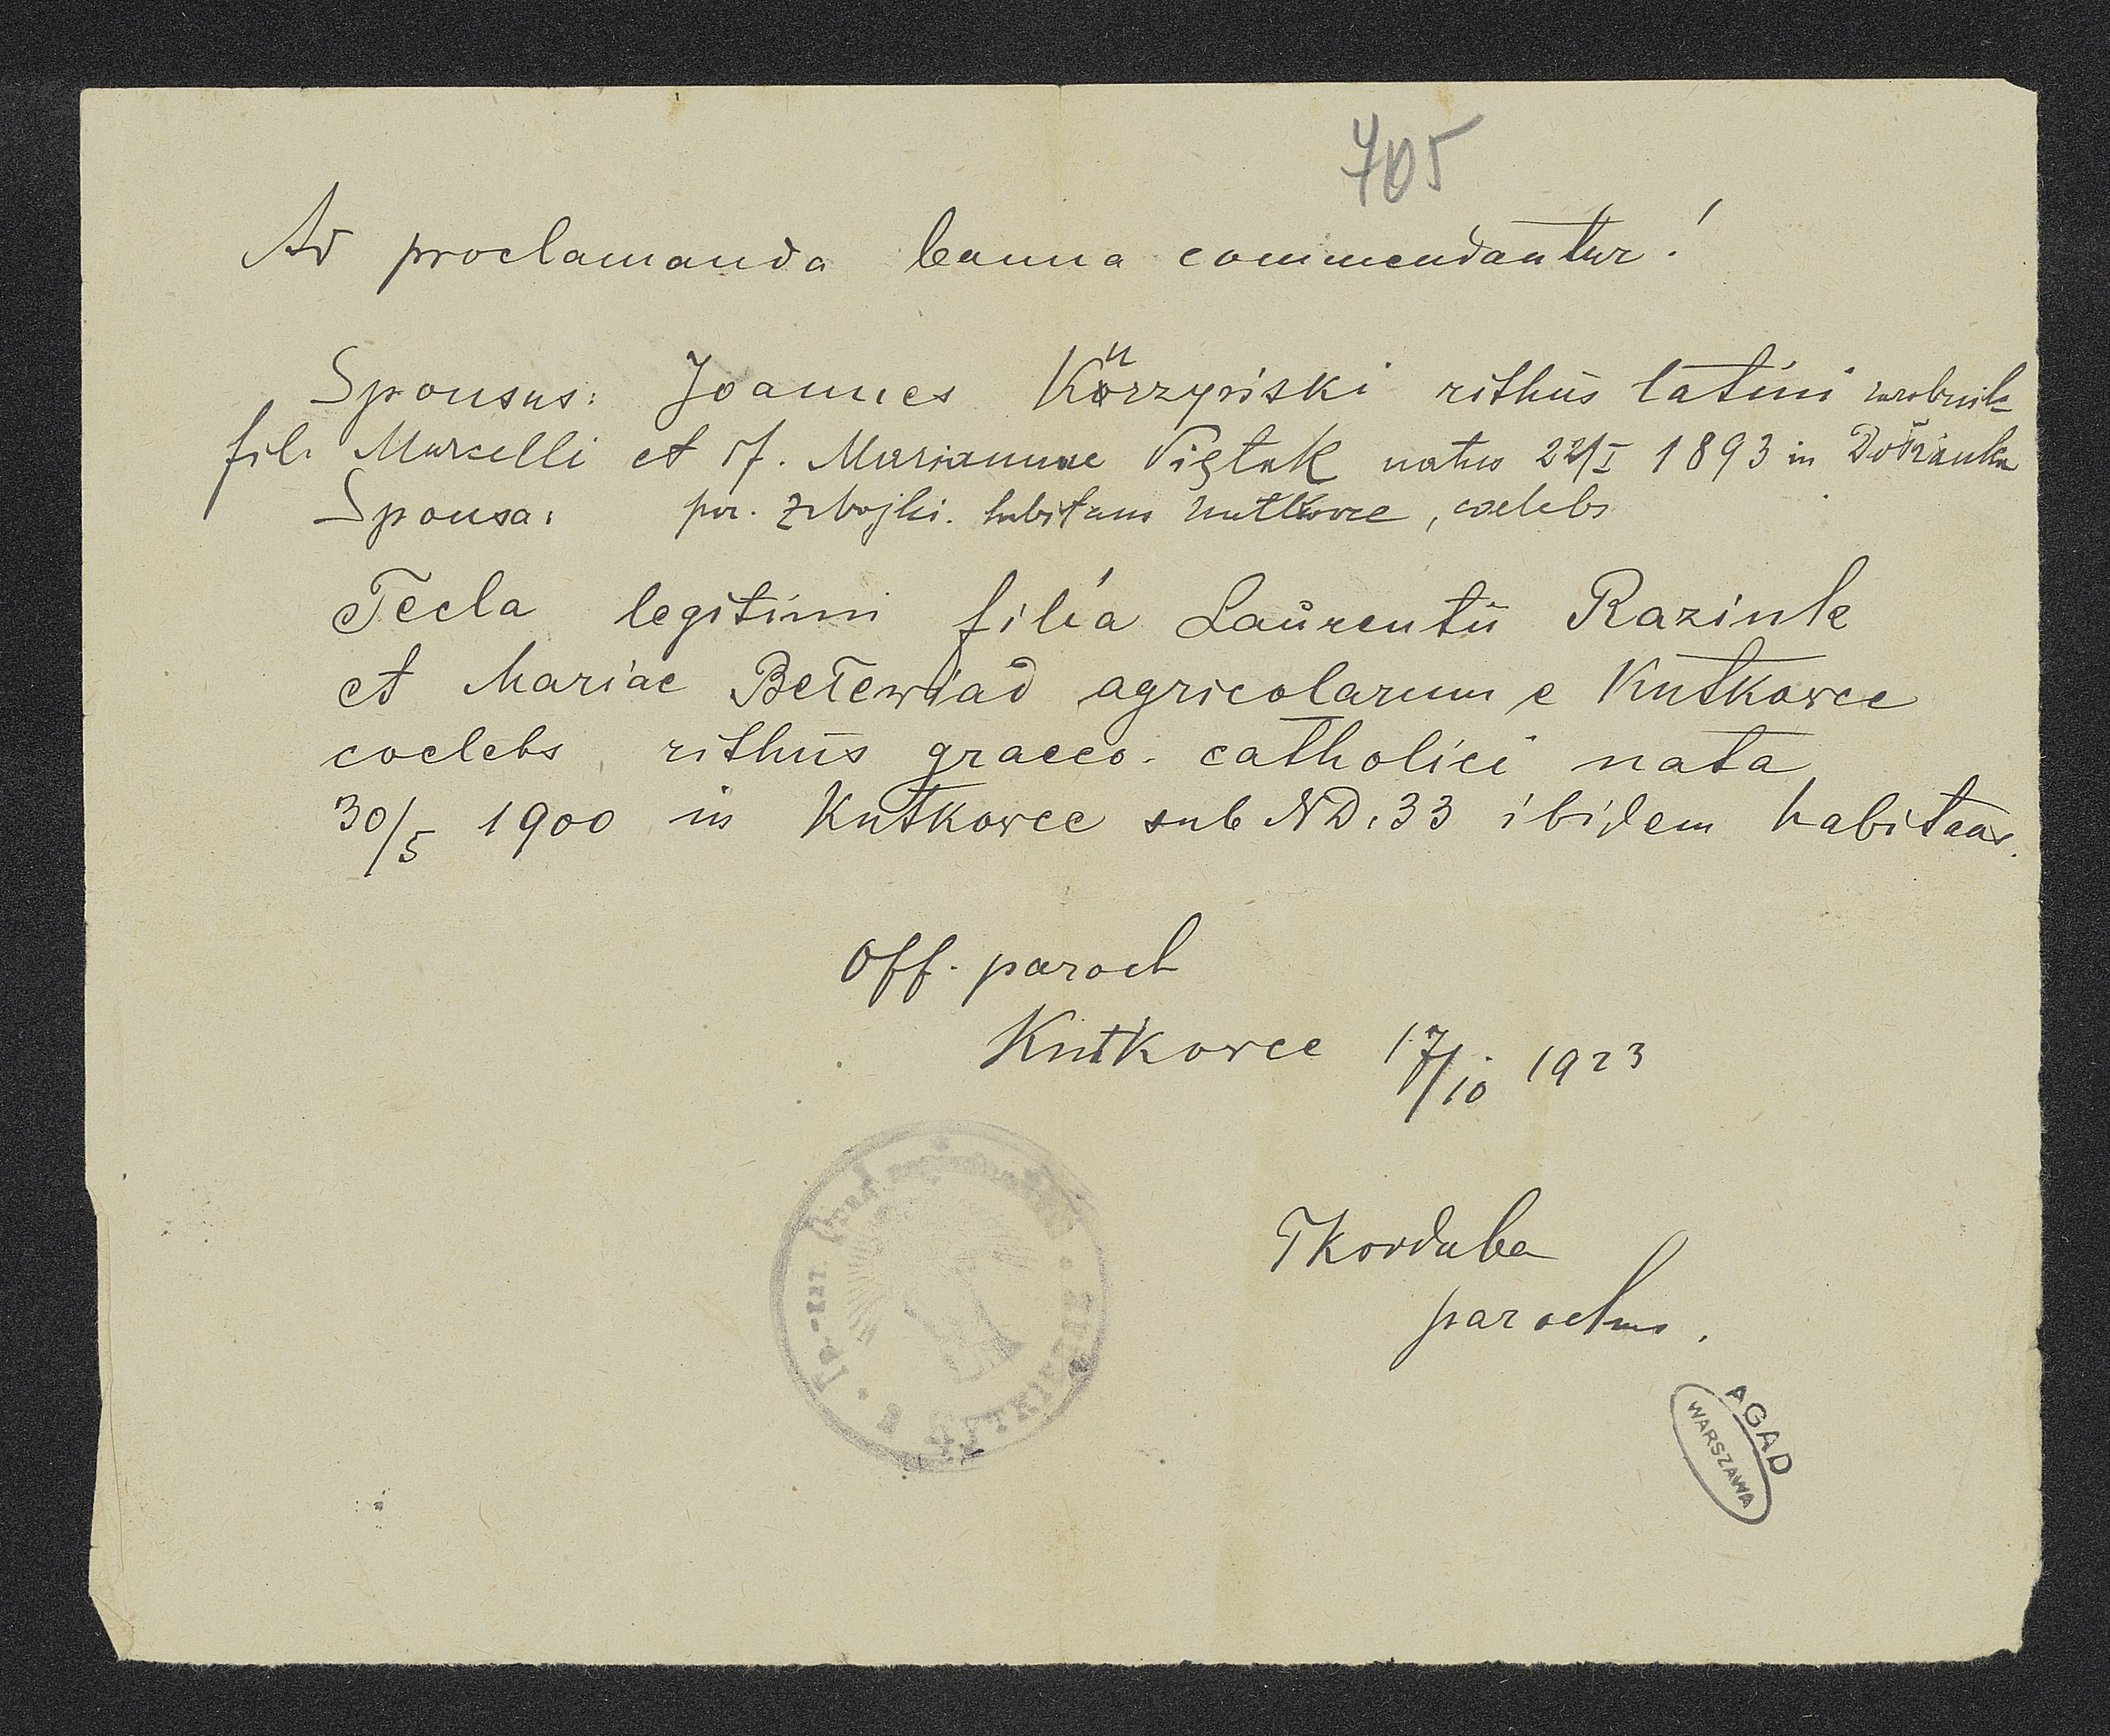 705
Ad proclamanda banna commendantur!
Sponsus: Joannes Kurzyński rithus latini zarobnik
fil. Marcelli et Mariannae Piętak natus 22/I 1893 in
Sponsa: par. Zbójki. habitans Kutkowce, coelebs
Tecla legitimi filia Laurentii Raziuk
et Mariae agricolarum e Kutkowce
coelebs rithus graeco-catholici nata
30/5 1900 in Kutkowce sub ND. 33 ibidem habitans.
Off. paroch
Kutkowce 17/10 1923
TKorduba
parochus.
AGAD
WARSZAWA